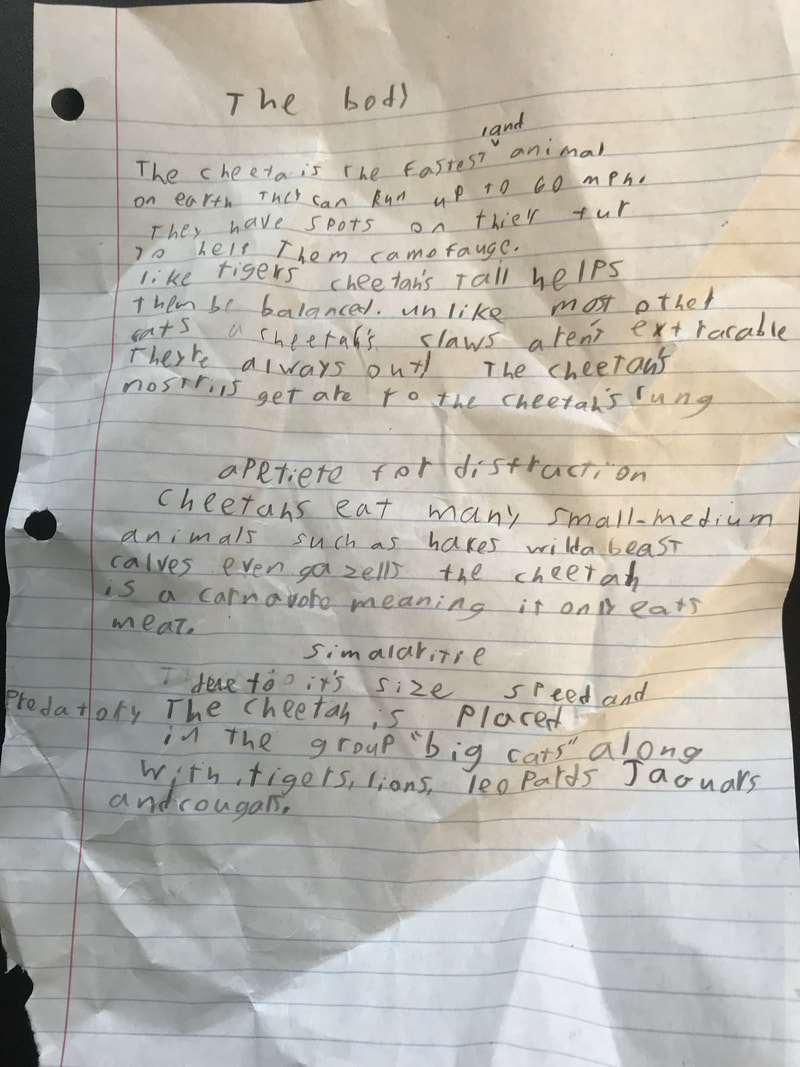 The body
land
The cheeta is the fastest animal
on earth They can Run up to 60 mph.
They have spots on thier fur
To help Them camofauge.
like tigers cheetah's Tail helps
them be balanced. unlike most other
cats a cheetah's slaws aren't extracable
They're always out! The cheetah's
nostrils get are to the cheetah's lung
apetiete for distraction
cheetahs eat many small-medium
animals such as hares wilda beast
calves even gazells the cheetah
is a carnavoro meaning it only eats
meat.
simalaritse
too it's size speed and
Predatory The cheetah is placed
in the group "big cats" along
with, tigers, lions, leopards Jaguars
and cougars.